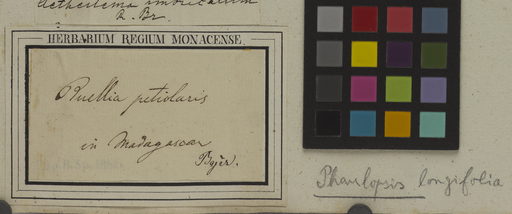 Aetheilema imbricatum
R. Br.
HERBARIUM REGIUM MONACENSE.
Ruellia petiolaris
in Madagascar
Bojer.
Phaulopsis longifolia